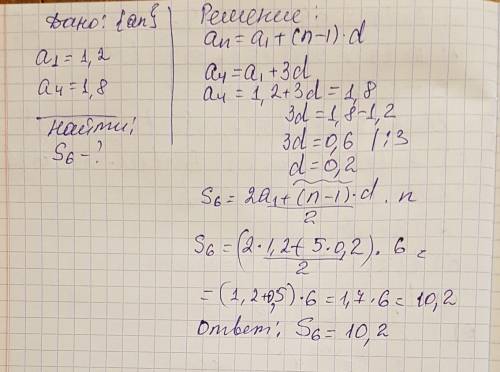 Дано: {an}
a1 = 1,2
a4 = 1,8
Найти:
S6 - ?
Решение:
an = a1 + (n-1)·d
a4 = a1 + 3d
a4 = 1,2 + 3d = 1,8
3d = 1,8 - 1,2
3d = 0,6 /:3
d = 0,2
S6 = 2a1 + (n-1)·d / 2 · n
S6 = (2·1,2 + 5·0,2 / 2) · 6 =
= (1,2 + 0,5)·6 = 1,7·6 = 10,2
Ответ: S6 = 10,2